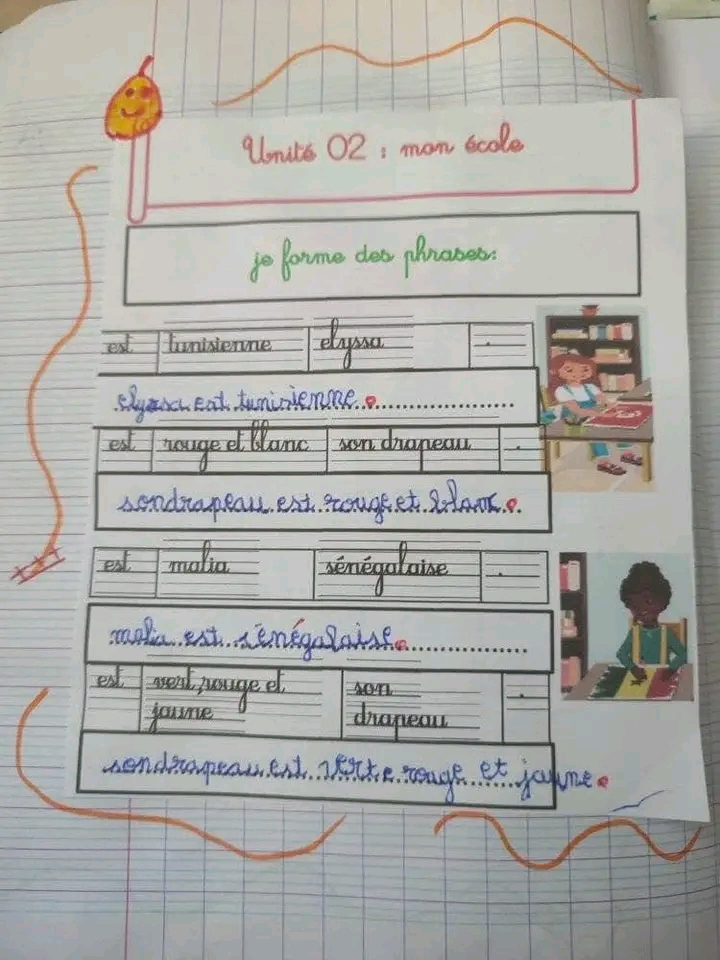 Unité 02 : mon école
je forme des phrases:
est tunisienne elyssa .
elyssa est tunisienne.
est rouge et blanc son drapeau .
sondrapeau est rouge et blanc.
est malia sénégalaise .
malia est sénégalaise.
est vert, rouge et jaune son drapeau .
sondrapeau est verte rouge et jaune.